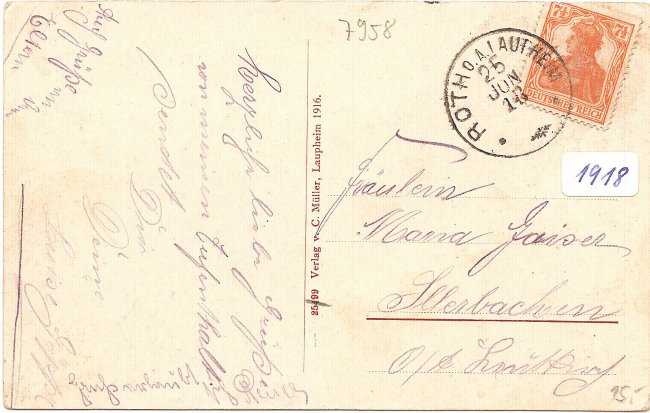 7958
7½ 7½
DEUTSCHES REICH
ROTH O.A. LAUPHEIM
25
JUN.
18
1918
Auf
Grüße
Eltern
Herzliche liebe Grüße
von meinem Aufenthalt
sendet Dir
Deine
25499 Verlag v. C. Müller, Laupheim 1916.
Fräulein
Maria Gaiser
Illerbachen
O/A Leutkirch
15.-